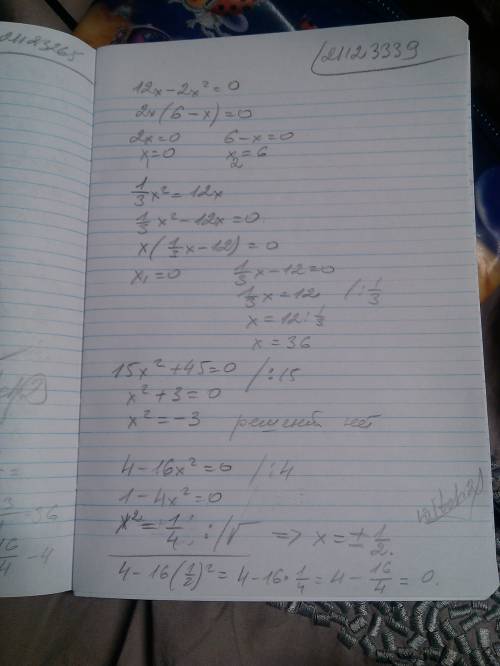 21123265
21123339
12x-2x²=0
2x(6-x)=0
2x=0 6-x=0
x₁=0 x₂=6
1/3 x²=12x
1/3 x²-12x=0
x(1/3 x-12)=0
x₁=0 1/3 x-12=0
1/3 x=12 /:1/3
x=12:1/3
x=36
15x²+45=0 /:15
x²+3=0
x²=-3 решений нет
4-16x²=0 /:4
1-4x²=0
x²=1/4 :/√ => x=±1/2.
4-16(1/2)²=4-16·1/4=4-16/4=0.